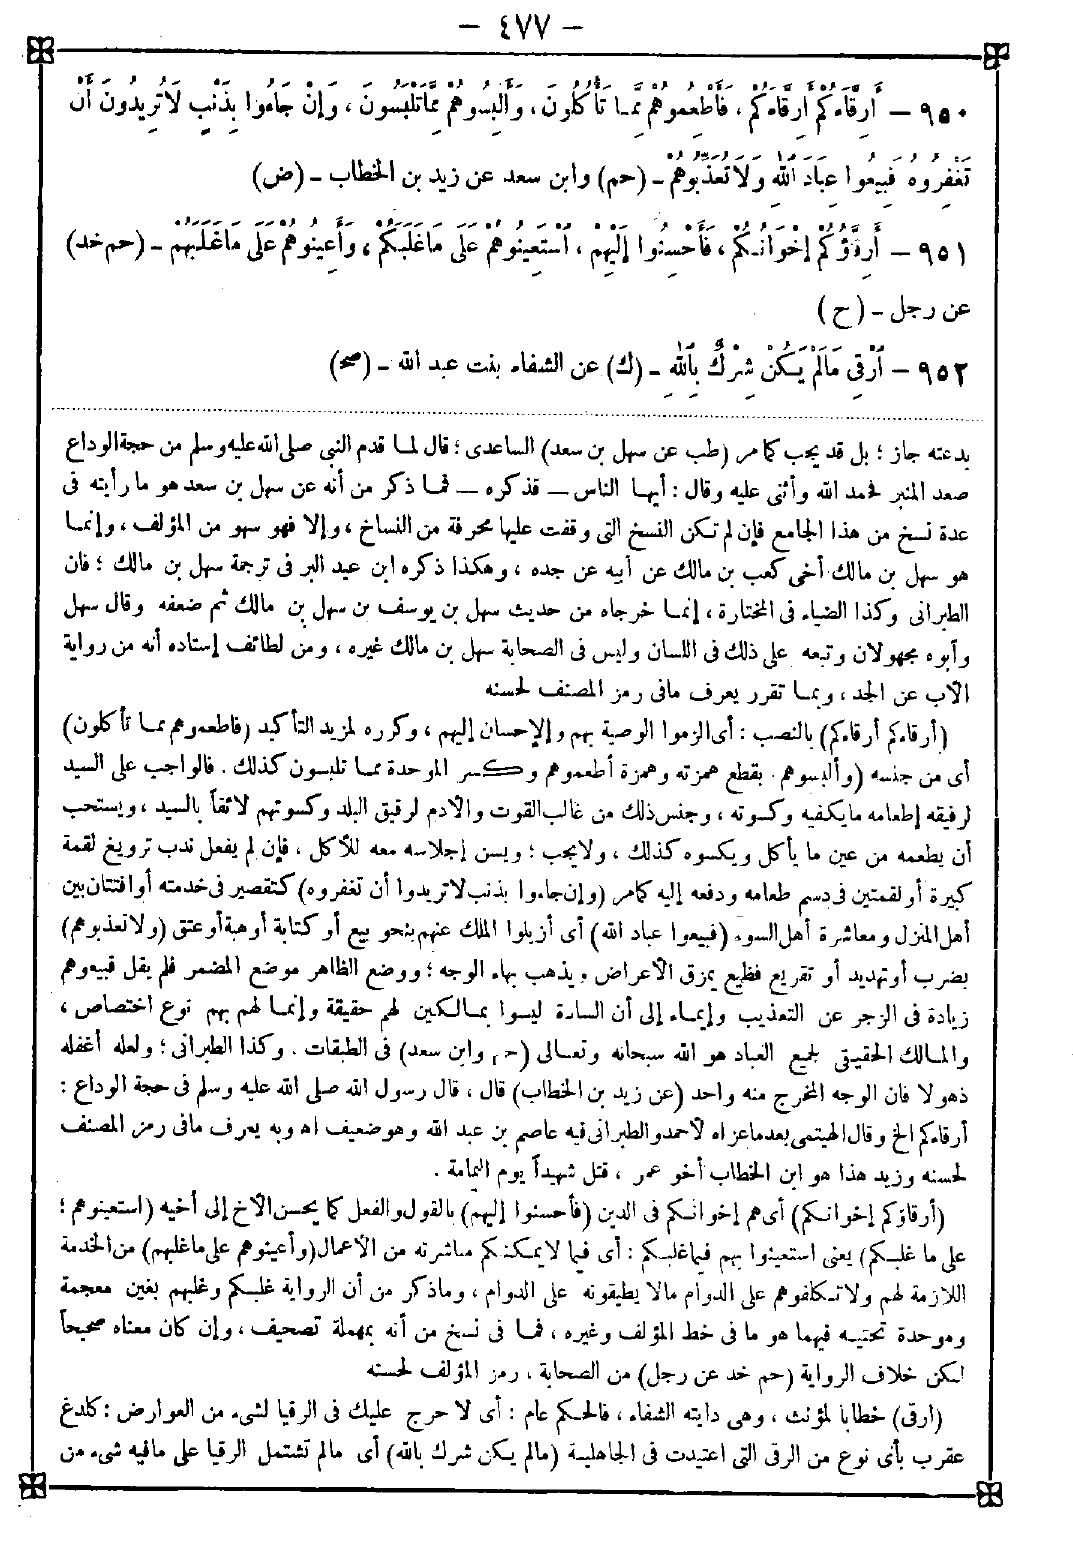 – ٤٧٧ –
٩٥٠ – أَرِقَّاءَكُمْ أَرِقَّاءَكُمْ ، فَأَطْعِمُوهُمْ مِمَّا تَأْكُلُونَ ، وَأَلْبِسُوهُمْ مِمَّا تَلْبَسُونَ ، وَإِنْ جَاءُوا بِذَنْبٍ لَا تُرِيدُونَ أَنْ
تَغْفِرُوهُ فَبِيعُوا عِبَادَ اللهِ وَلَا تُعَذِّبُوهُمْ – (حم) وابن سعد عن زيد بن الخطاب – (ض)
٩٥١ – أَرِقَّاؤُكُمْ إِخْوَانُكُمْ ، فَأَحْسِنُوا إِلَيْهِمْ ، اسْتَعِينُوهُمْ عَلَى مَا غَلَبَكُمْ ، وَأَعِينُوهُمْ عَلَى مَا غَلَبَهُمْ – (حم خد)
عن رجل – (ح)
٩٥٢ – أَرْقِي مَالَمْ يَكُنْ شِرْكٌ بِاللهِ – (ك) عن الشفاء بنت عبد الله – (صح)
بدعته جاز ؛ بل قد يجب كما مر (طب عن سهل بن سعد) الساعدى ؛ قال لما قدم النبى صلى الله عليه وسلم من حجة الوداع
صعد المنبر فحمد الله وأثنى عليه وقال : أيها الناس – فذكره – فما ذكر من أنه عن سهل بن سعد هو ما رأيته فى
عدة نسخ من هذا الجامع فإن لم تكن النسخ التى وقفت عليها محرفة من النساخ ، وإلا فهو سهو من المؤلف ، وإنما
هو سهل بن مالك أخى كعب بن مالك عن أبيه عن جده ، وهكذا ذكره ابن عبد البر فى ترجمة سهل بن مالك ؛ فان
الطبرانى وكذا الضياء فى المختارة ، إنما خرجاه من حديث سهل بن يوسف بن سهل بن مالك ثم ضعفه وقال سهل
وأبوه مجهولان وتبعه على ذلك فى اللسان وليس فى الصحابة سهل بن مالك غيره ، ومن لطائف إسناده أنه من رواية
الأب عن الجد ، وبما تقرر يعرف مافى رمز المصنف لحسنه
(أرقاءكم أرقاءكم) بالنصب : أى الزموا الوصية بهم والإحسان إليهم ، وكرره لمزيد التأكيد (فاطعموهم مما تأكلون)
أى من جنسه (وألبسوهم . بقطع همزته وهمزة أطعموهم وكسر الموحدة مما تلبسون كذلك . فالواجب على السيد
لرفيقه إطعامه مايكفيه وكسوته ، وجنس ذلك من غالب القوت والأدم لرقيق البلد وكسوتهم لائقاً بالسيد ، ويستحب
أن يطعمه من عين ما يأكل ويكسوه كذلك ، ولايجب ؛ ويسن إجلاسه معه للأكل ، فإن لم يفعل ندب ترويغ لقمة
كبيرة أو لقمتين فى دسم طعامه ودفعه إليه كمامر (وإن جاءوا بذنب لا تريدوا أن تغفروه) كتقصير فى خدمته أوافتتان بين
أهل المنزل ومعاشرة أهل السوء (فبيعوا عباد الله) أى أزيلوا الملك عنهم بنحو بيع أو كتابة أوهبة أوعتق (ولا تعذبوهم)
بضرب أوتهديد أو تقريع فظيع يمزق الأعراض ويذهب بهاء الوجه ؛ ووضع الظاهر موضع المضمر فلم يقل فبيعوهم
زيادة فى الزجر عن التعذيب وإيماء إلى أن السادة ليسوا بمالكين لهم حقيقة وإنما لهم بهم نوع اختصاص ،
والمالك الحقيقى لجميع العباد هو الله سبحانه وتعالى (حم وابن سعد) فى الطبقات . وكذا الطبرانى ؛ ولعله أغفله
ذهولا فان الوجه المخرج منه واحد (عن زيد بن الخطاب) قال ، قال رسول الله صلى الله عليه وسلم فى حجة الوداع :
أرقاءكم الخ وقال الهيتمى بعد ماعزاه لأحمد والطبرانى فيه عاصم بن عبد الله وهو ضعيف اه وبه يعرف مافى رمز المصنف
لحسنه وزيد هذا هو ابن الخطاب أخو عمر ، قتل شهيداً يوم اليمامة .
(أرقاؤكم إخوانكم) أى هم إخوانكم فى الدين (فأحسنوا إليهم) بالقول والفعل كما يحسن الأخ إلى أخيه (استعينوهم ؛
على ما غلبكم) يعنى استعينوا بهم فيما غلبكم : أى فيما لايمكنكم مباشرته من الأعمال (وأعينوهم على ما غلبهم) من الخدمة
اللازمة لهم ولا تكلفوهم على الدوام مالا يطيقونه على الدوام ، وماذكر من أن الرواية غلبكم وغلبهم بغين معجمة
وموحدة تحتية فيهما هو ما فى خط المؤلف وغيره ، فما فى نسخ من أنه بمهملة تصحيف ، وإن كان معناه صحيحاً
لكن خلاف الرواية (حم خد عن رجل) من الصحابة ، رمز المؤلف لحسنه
(ارقى) خطابا لمؤنث ، وهى دايته الشفاء ، فالحكم عام : أى لا حرج عليك فى الرقيا لشىء من العوارض : كلدغ
عقرب بأى نوع من الرقى التى اعتيدت فى الجاهلية (مالم يكن شرك بالله) أى مالم تشتمل الرقيا على مافيه شىء من